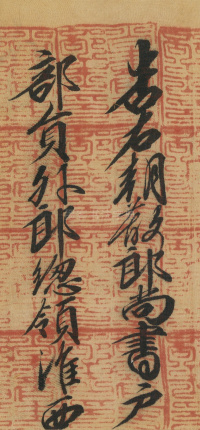 右朝散郎尚書户
部員外郎總領淮西